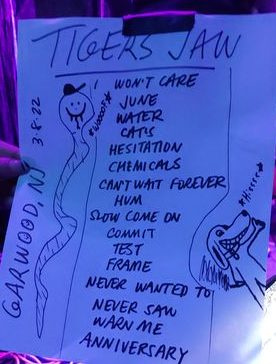 TIGERS JAW
I WON'T CARE
JUNE
WATER
CATS
HESITATION
CHEMICALS
CAN'T WAIT FOREVER
HUM
SLOW COME ON
COMMIT
TEST
FRAME
NEVER WANTED TO
NEVER SAW
WARN ME
ANNIVERSARY
GARWOOD, NJ 3.8.22
*WOOOF*
*Hisssss*